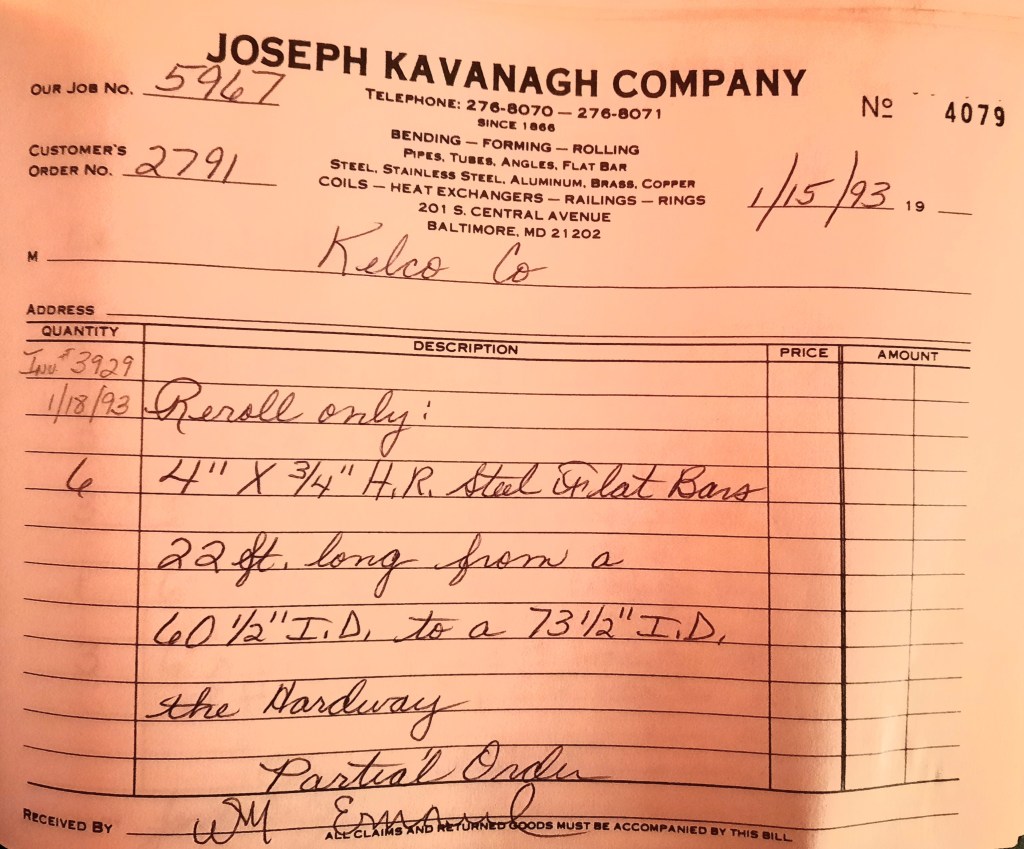 JOSEPH KAVANAGH COMPANY
OUR JOB NO. 5967
TELEPHONE: 276-8070 — 276-8071
Nº 4079
SINCE 1866
BENDING — FORMING — ROLLING
PIPES, TUBES, ANGLES, FLAT BAR
CUSTOMER'S
ORDER NO. 2791
STEEL, STAINLESS STEEL, ALUMINUM, BRASS, COPPER
COILS — HEAT EXCHANGERS — RAILINGS — RINGS
1/15/93 19
201 S. CENTRAL AVENUE
BALTIMORE, MD 21202
M Kelco Co
ADDRESS
QUANTITY DESCRIPTION PRICE AMOUNT
Inv # 3929
1/18/93 Reroll only:
6 4" X 3/4" H.R. Steel Flat Bars
22 ft. long from a
60 1/2" I.D. to a 73 1/2" I.D.
the Hardway
Partial Order
RECEIVED BY Wm
ALL CLAIMS AND RETURNED GOODS MUST BE ACCOMPANIED BY THIS BILL